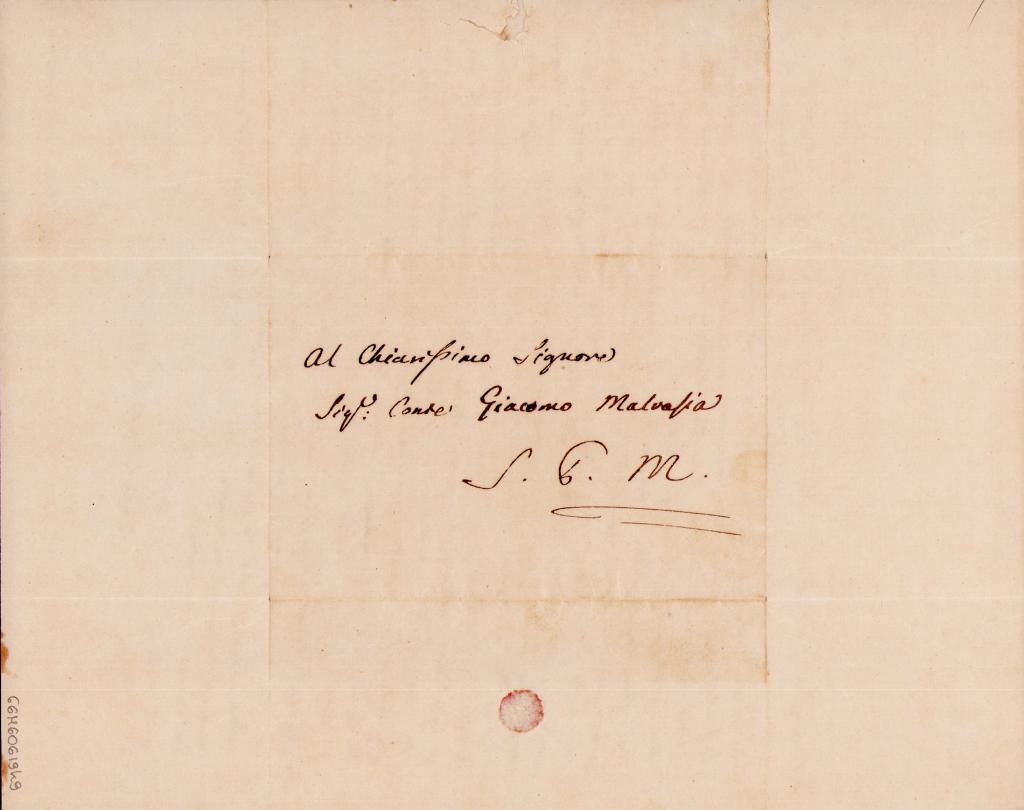 Al Chiarissimo Signore
Sigr: Conte Giacomo Malvasia
S. P. M.